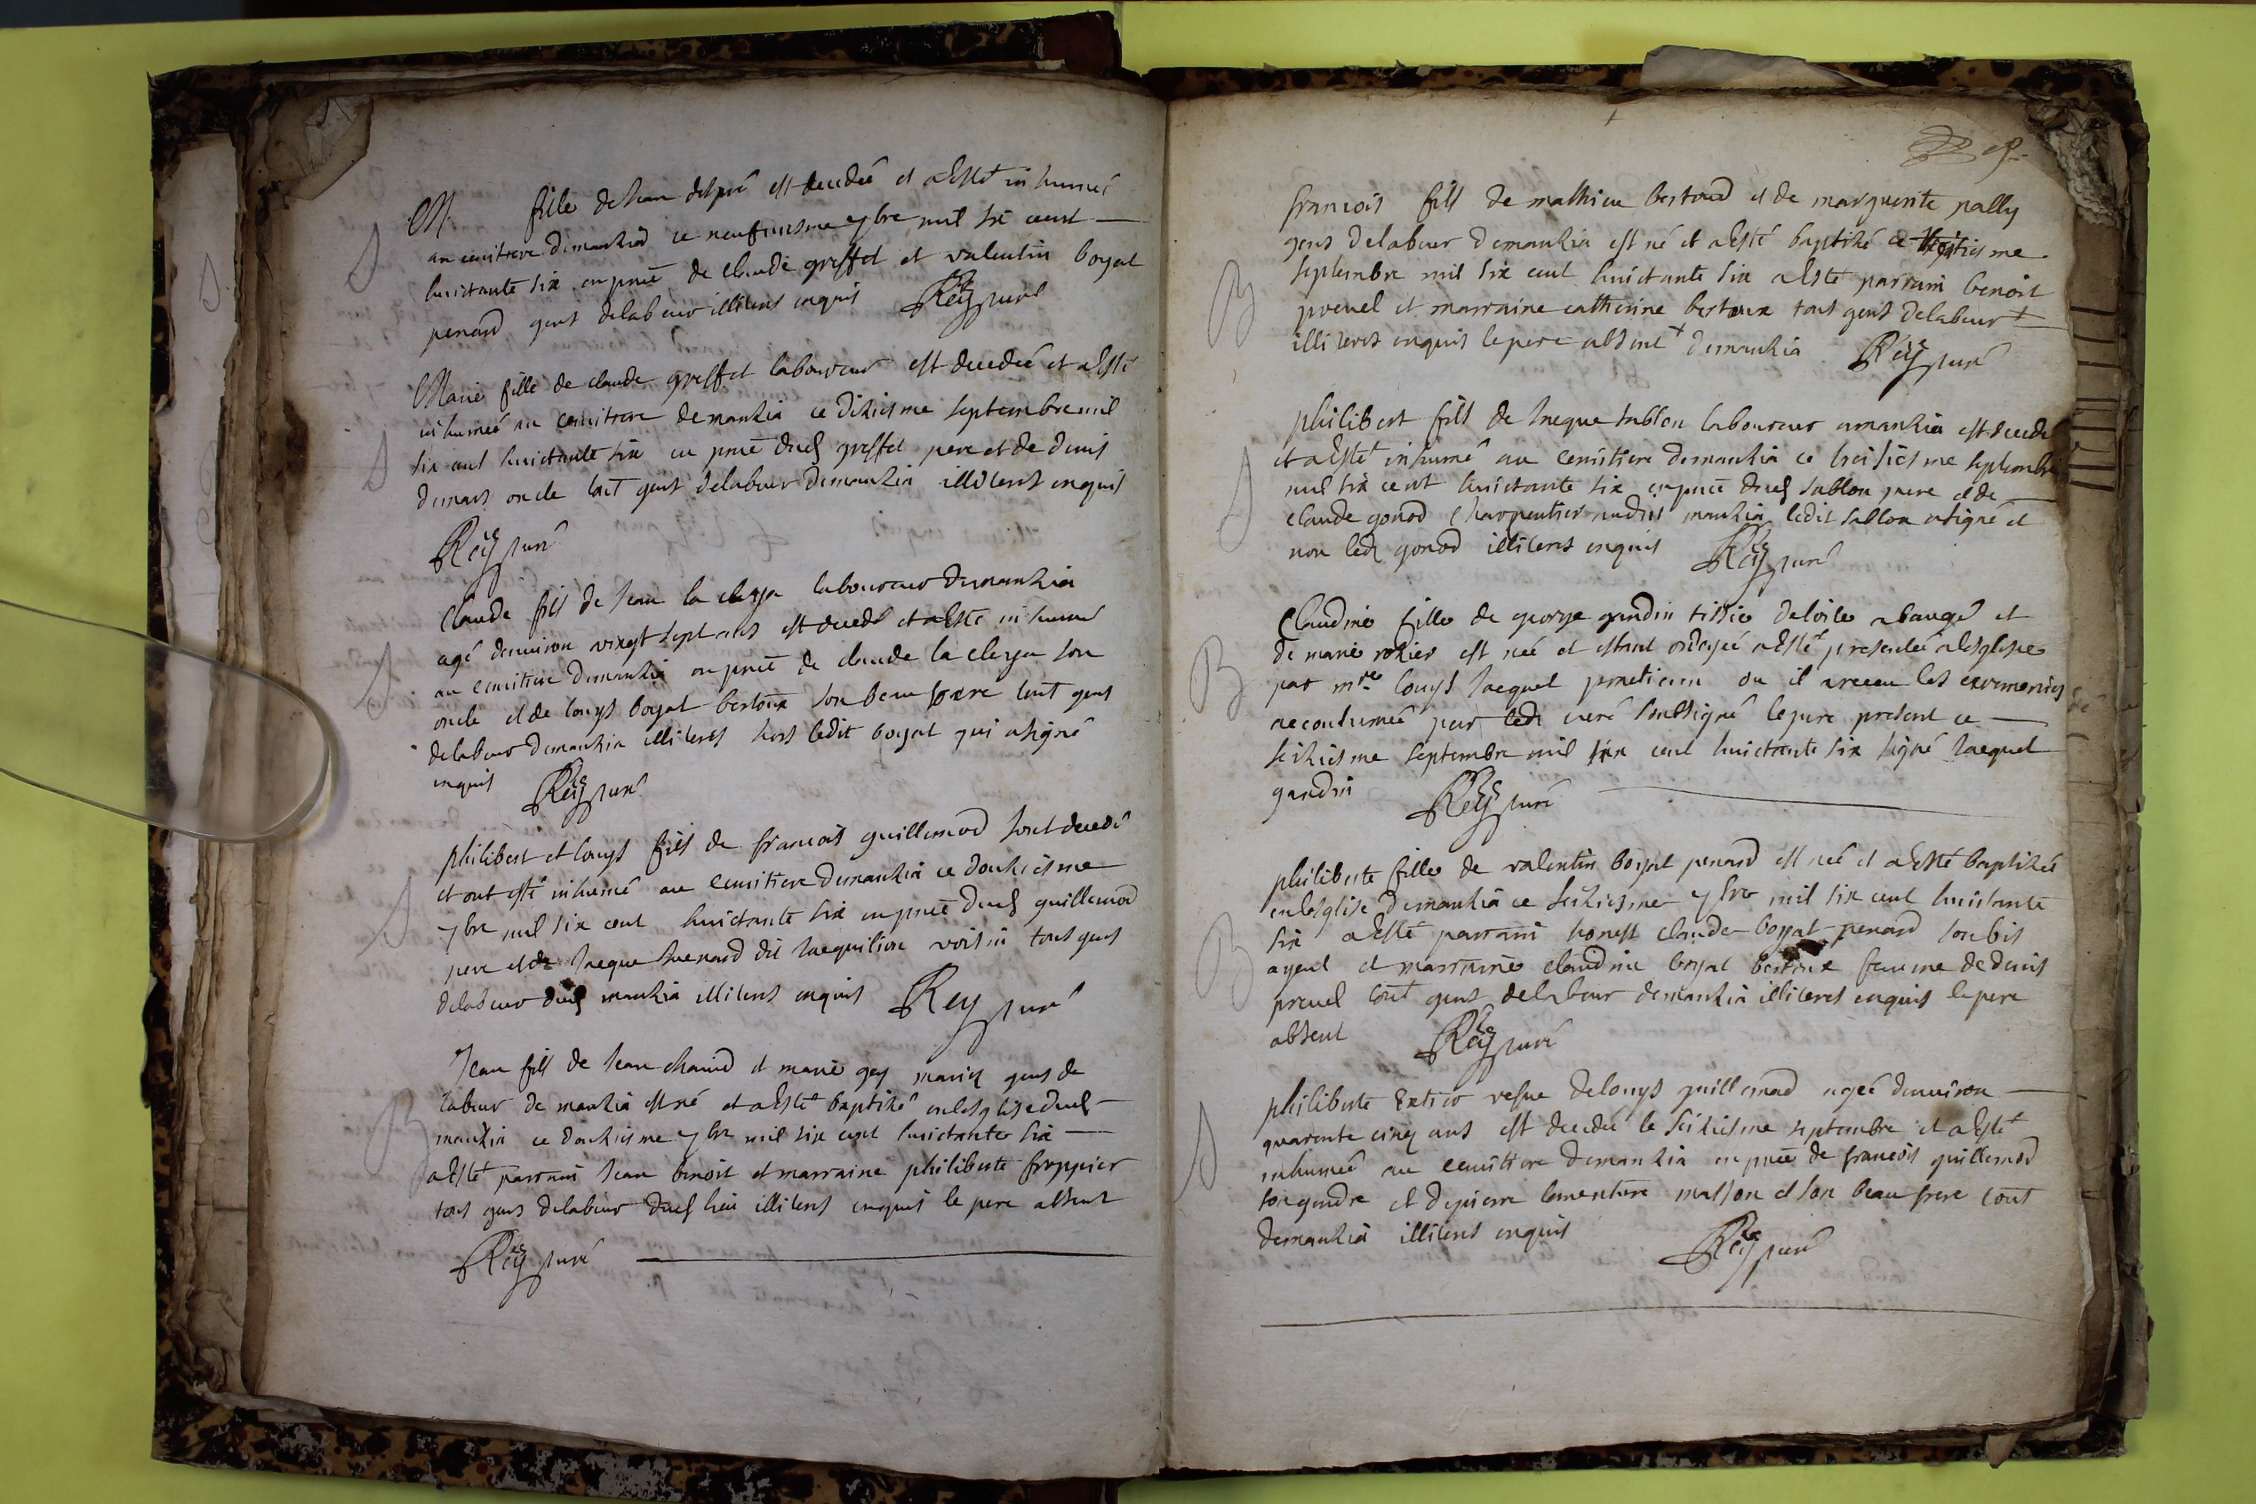 M fille de Jean despré est decedeé et a Esté inhumeé
au cemitiere demankia ce neufviesme 7bre mil six cent
huictante six en pnce de Claude greffet et valentin boyat
penard gens delabeur illiteres enquis Rey curé
Marie fille de claude greffet laboureur est decedeé et a Esté
inhumeé au cemitiere demankia ce dixiesme septembre mil
six cent huictante six en pnce dud greffet pere et de denis
oncle tout gens delabeur demankia illiteres enquis
Rey curé
Claude fils de Jean la claye laboureur demankia
agé denviron vingt sept ans est decedé et a Esté inhumé
au cemitiere demankia en pnce de claude la claye son
oncle et de louys boyat bertoux son beau frere tout gens
delabeur demankia illiteres hors ledit boyat qui a signé
enquis Rey curé
philibert et louys fils de francois guillemod sont decedé
et ont esté inhumé au cemitiere demankia ce douziesme
7bre mil six cent huictante six en pnce dud guillemod
pere et de Jaque dit voisin tous gens
delabeur dud mankia illiteres enquis Rey curé
Jean fils de Jean chanud et marie gey mariez gens de
labeur de mankia est né et a Esté baptizé en lesglise dud
mankia ce douziesme 7bre mil six cent huictante six
a Esté parrain Jean benoit et marraine philiberte froppier
tous gens delabeur dud lieu illiteres enquis le pere absent
Rey curé
francois fils de mathieu bertoud et de marguerite pally
gens delabeur demankia est né et a Esté baptizé ce
septembre mil six cent huictante six a Esté parrain benoit
prevel et marraine catherine bertoux tous gens delabeur +
illiteres enquis le pere absent + demankia Rey curé
philibert fils de Jaque sablon laboureur amankia est decedé
et a Esté inhumé au cemitiere demankia ce treisiesme septembre
mil six cent huictante six en pnce dud sablon pere et de
claude gonod charpentier audit mankia ledit sablon a signé et
non led gonod illiteres enquis Rey curé
Claudine fille de george gandin tissie detoile a baugé et
de marie rozier est née et estant ondoyeé a Esté presenteé a lesglise
par mre louys Jacquet practicien ou il a receu les ceremonies
accoutumeé par led curé soubsigné le pere present ce
seiziesme septembre mil six cent huictante six signé Jacquet
gandin Rey curé
philiberte fille de valentin boyat penard est neé et a Esté baptizée
en lesglise demankia ce seiziesme 7bre mil six cent huictante
six a Esté parrain honest claude boyat penard son bis
ayeul et marraine claudine boyat bertoux femme de denis
prevel tout gens delabeur demankia illiteres enquis le pere
absent Rey curé
philiberte vefve delouys guillemod ageé denviron
quarente cinq ans est decedeé le seiziesme septembre et a Esté
inhumeé au cemitiere demankia en pnce de francois guillemod
son gendre et de pierre masson et son beau frere tout
demankia illiteres enquis Rey curé